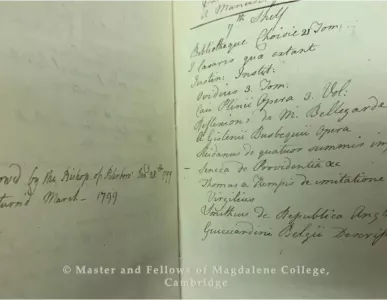 a Manuscri
7th Shelf
Bibliotheque Choisie 28 Tom;
J Caesaris quæ extant
Justin: Instit:
Ovidius 3. Tom:
Caii Plinii Opera 3. Vol:
Reflexions de M. Bellegarde
A Gislenii Busbequii Opera
Sleidanus de quatuor summis imp
Seneca de Providentia &c
Thomas a Kempis de imitatione
Virgilius
Smitheus de Republica Angl
Guicciardini Belgiæ Descrip
owed by the Bishop of Peterboro'
turn'd March - 1799
© Master and Fellows of Magdalene College,
Cambridge